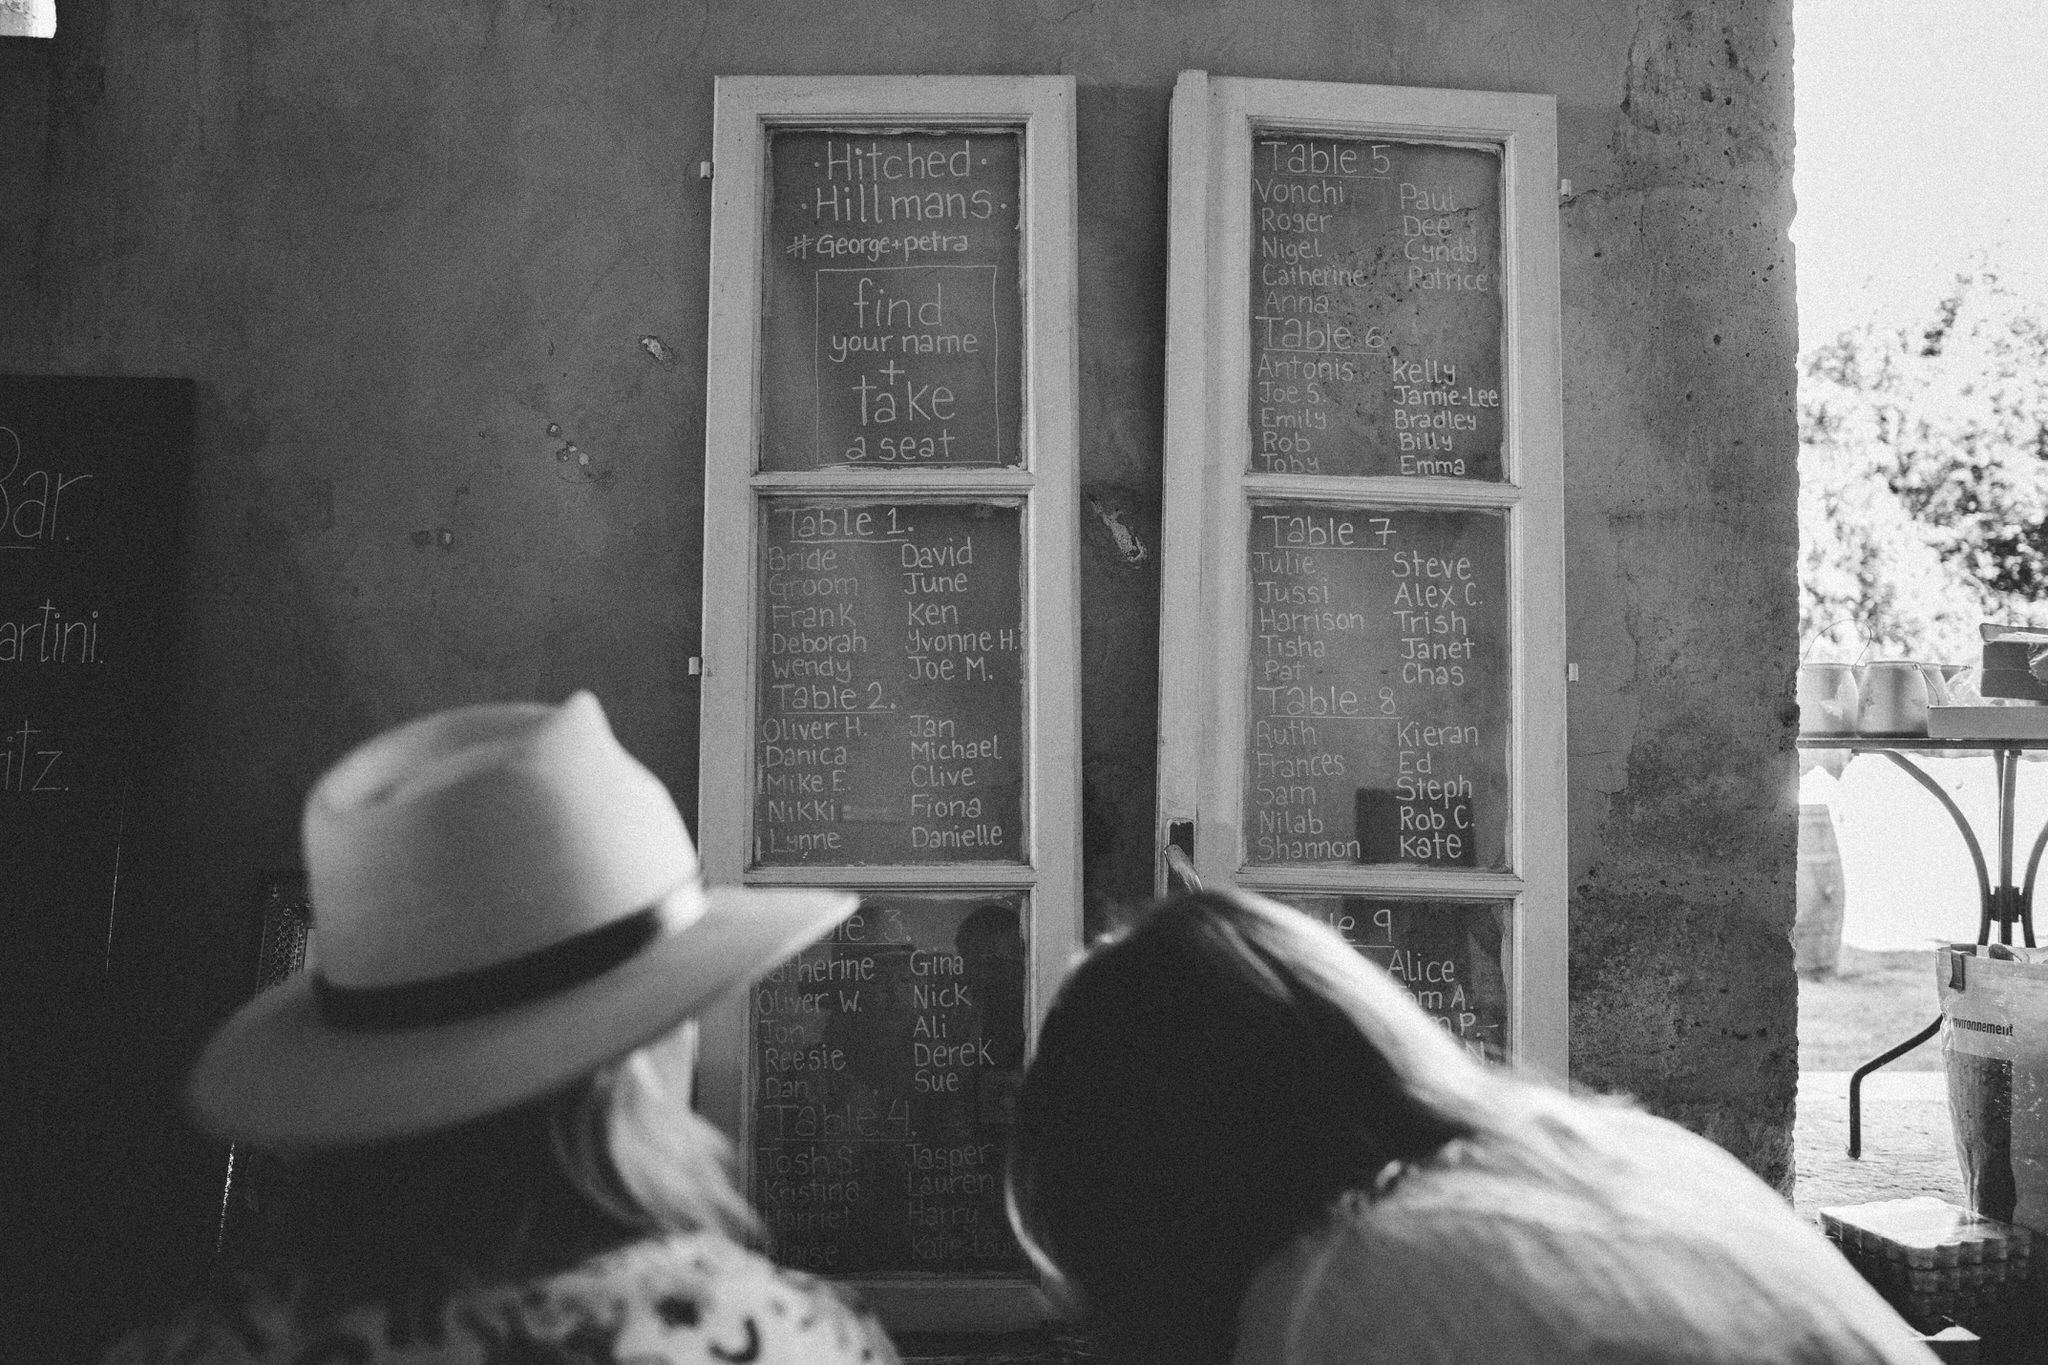 ·Hitched·
·Hillmans·
#George+petra
find
your name
+
take
a seat
Table 1.
Bride David
Groom June
Frank Ken
Deborah Yvonne H.
Wendy Joe M.
Table 2.
Oliver H. Jan
Danica Michael
Mike E. Clive
Nikki Fiona
Lynne Danielle
3.
Gina
Oliver W. Nick
Jon Ali
Reesie Derek
Dan Sue
Table 4.
Josh S. Jasper
Kristina Lauren
Harriet Harry
Blaise
Table 5
Vonchi Paul
Roger Dee
Nigel Cyndy
Catherine Patrice
Anna
Table 6
Antonis Kelly
Joe S. Jamie-Lee
Emily Bradley
Rob Billy
Toby Emma
Table 7
Julie Steve
Jussi Alex C.
Harrison Trish
Tisha Janet
Pat Chas
Table 8
Ruth Kieran
Frances Ed
Sam Steph
Nilab Rob C.
Shannon Kate
9
Alice
A.
P.
Bar.